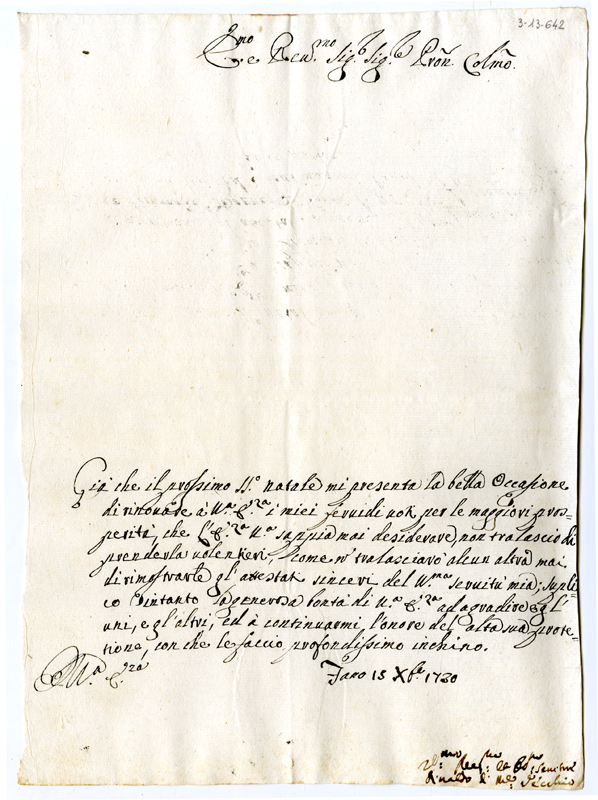 3-13-642
E.mo e Reu.mo Sig.r Sig.r Pron. Colmo.
Già che il prossimo SS.o natale mi presenta la bella Occasione
di rinouare à V.a E.za i miei feruidi uoti per le maggiori pros=
perità, che l'E.za V.a sappia mai desiderare, non tralascio di
prenderla uolentieri, come n' tralasciarò alcun altra mai
di rimostrarle gl'attestati sinceri del V.ma seruitù mia; supli=
co intanto la generosa bontà di V.a E.za ad agradire e gl'
uni, e gl'altri, ed à continuarmi l'onore del alta sua prote=
tione, con che le faccio profondissimo inchino.
Di V.a E.za
Fano 15 Xbre 1730
Rinaldo